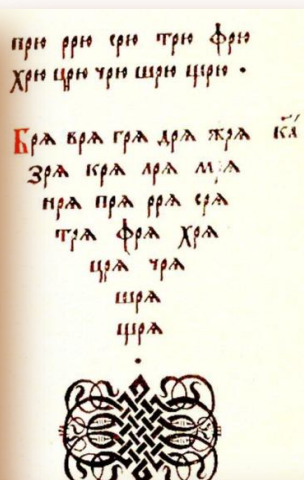 прю ррю срю трю фрю
хрю црю чрю шрю щрю ·
Брѧ врѧ грѧ дрѧ жрѧ
зрѧ крѧ лрѧ мрѧ
нрѧ прѧ ррѧ срѧ
трѧ фрѧ хрѧ
црѧ чрѧ
шрѧ
щрѧ